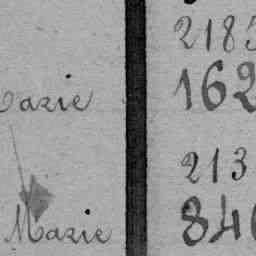 218
162
Marie
213
Marie 84